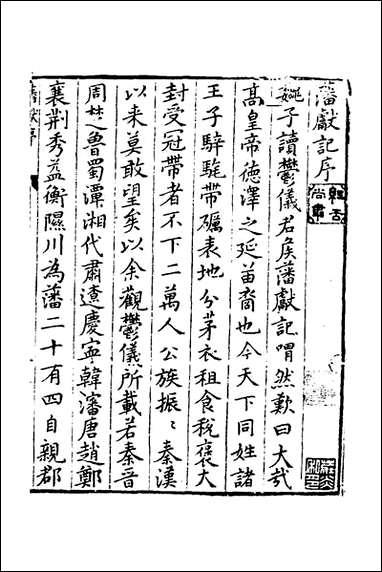 藩獻記序
子讀鬱儀君矦藩獻記喟然歎曰大哉
髙皇帝德澤之延苗裔也今天下同姓諸
王子騂駹帶礪表地分茅衣租食稅襃大
封受冠帶者不下二萬人公族振〻秦漢
以来莫敢望矣以余觀鬱儀所載若秦晉
周楚魯蜀潭湘代肅遼慶寧韓瀋唐趙鄭
襄荆秀益衡隰川為藩二十有四自親郡